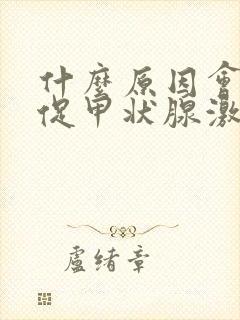 什麼原因會
促甲状腺激
盧緒章